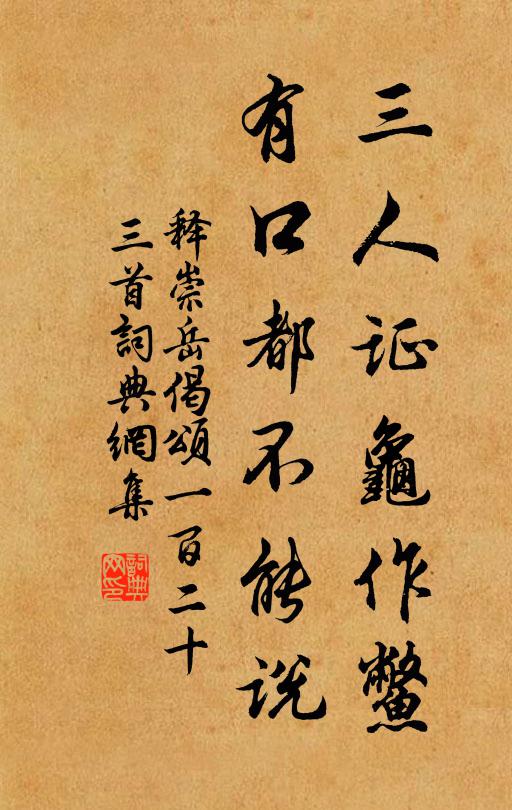 三人证龜作鱉
有口都不能说
释崇岳偈頌一百二十
三首詞典網集
詞典网印